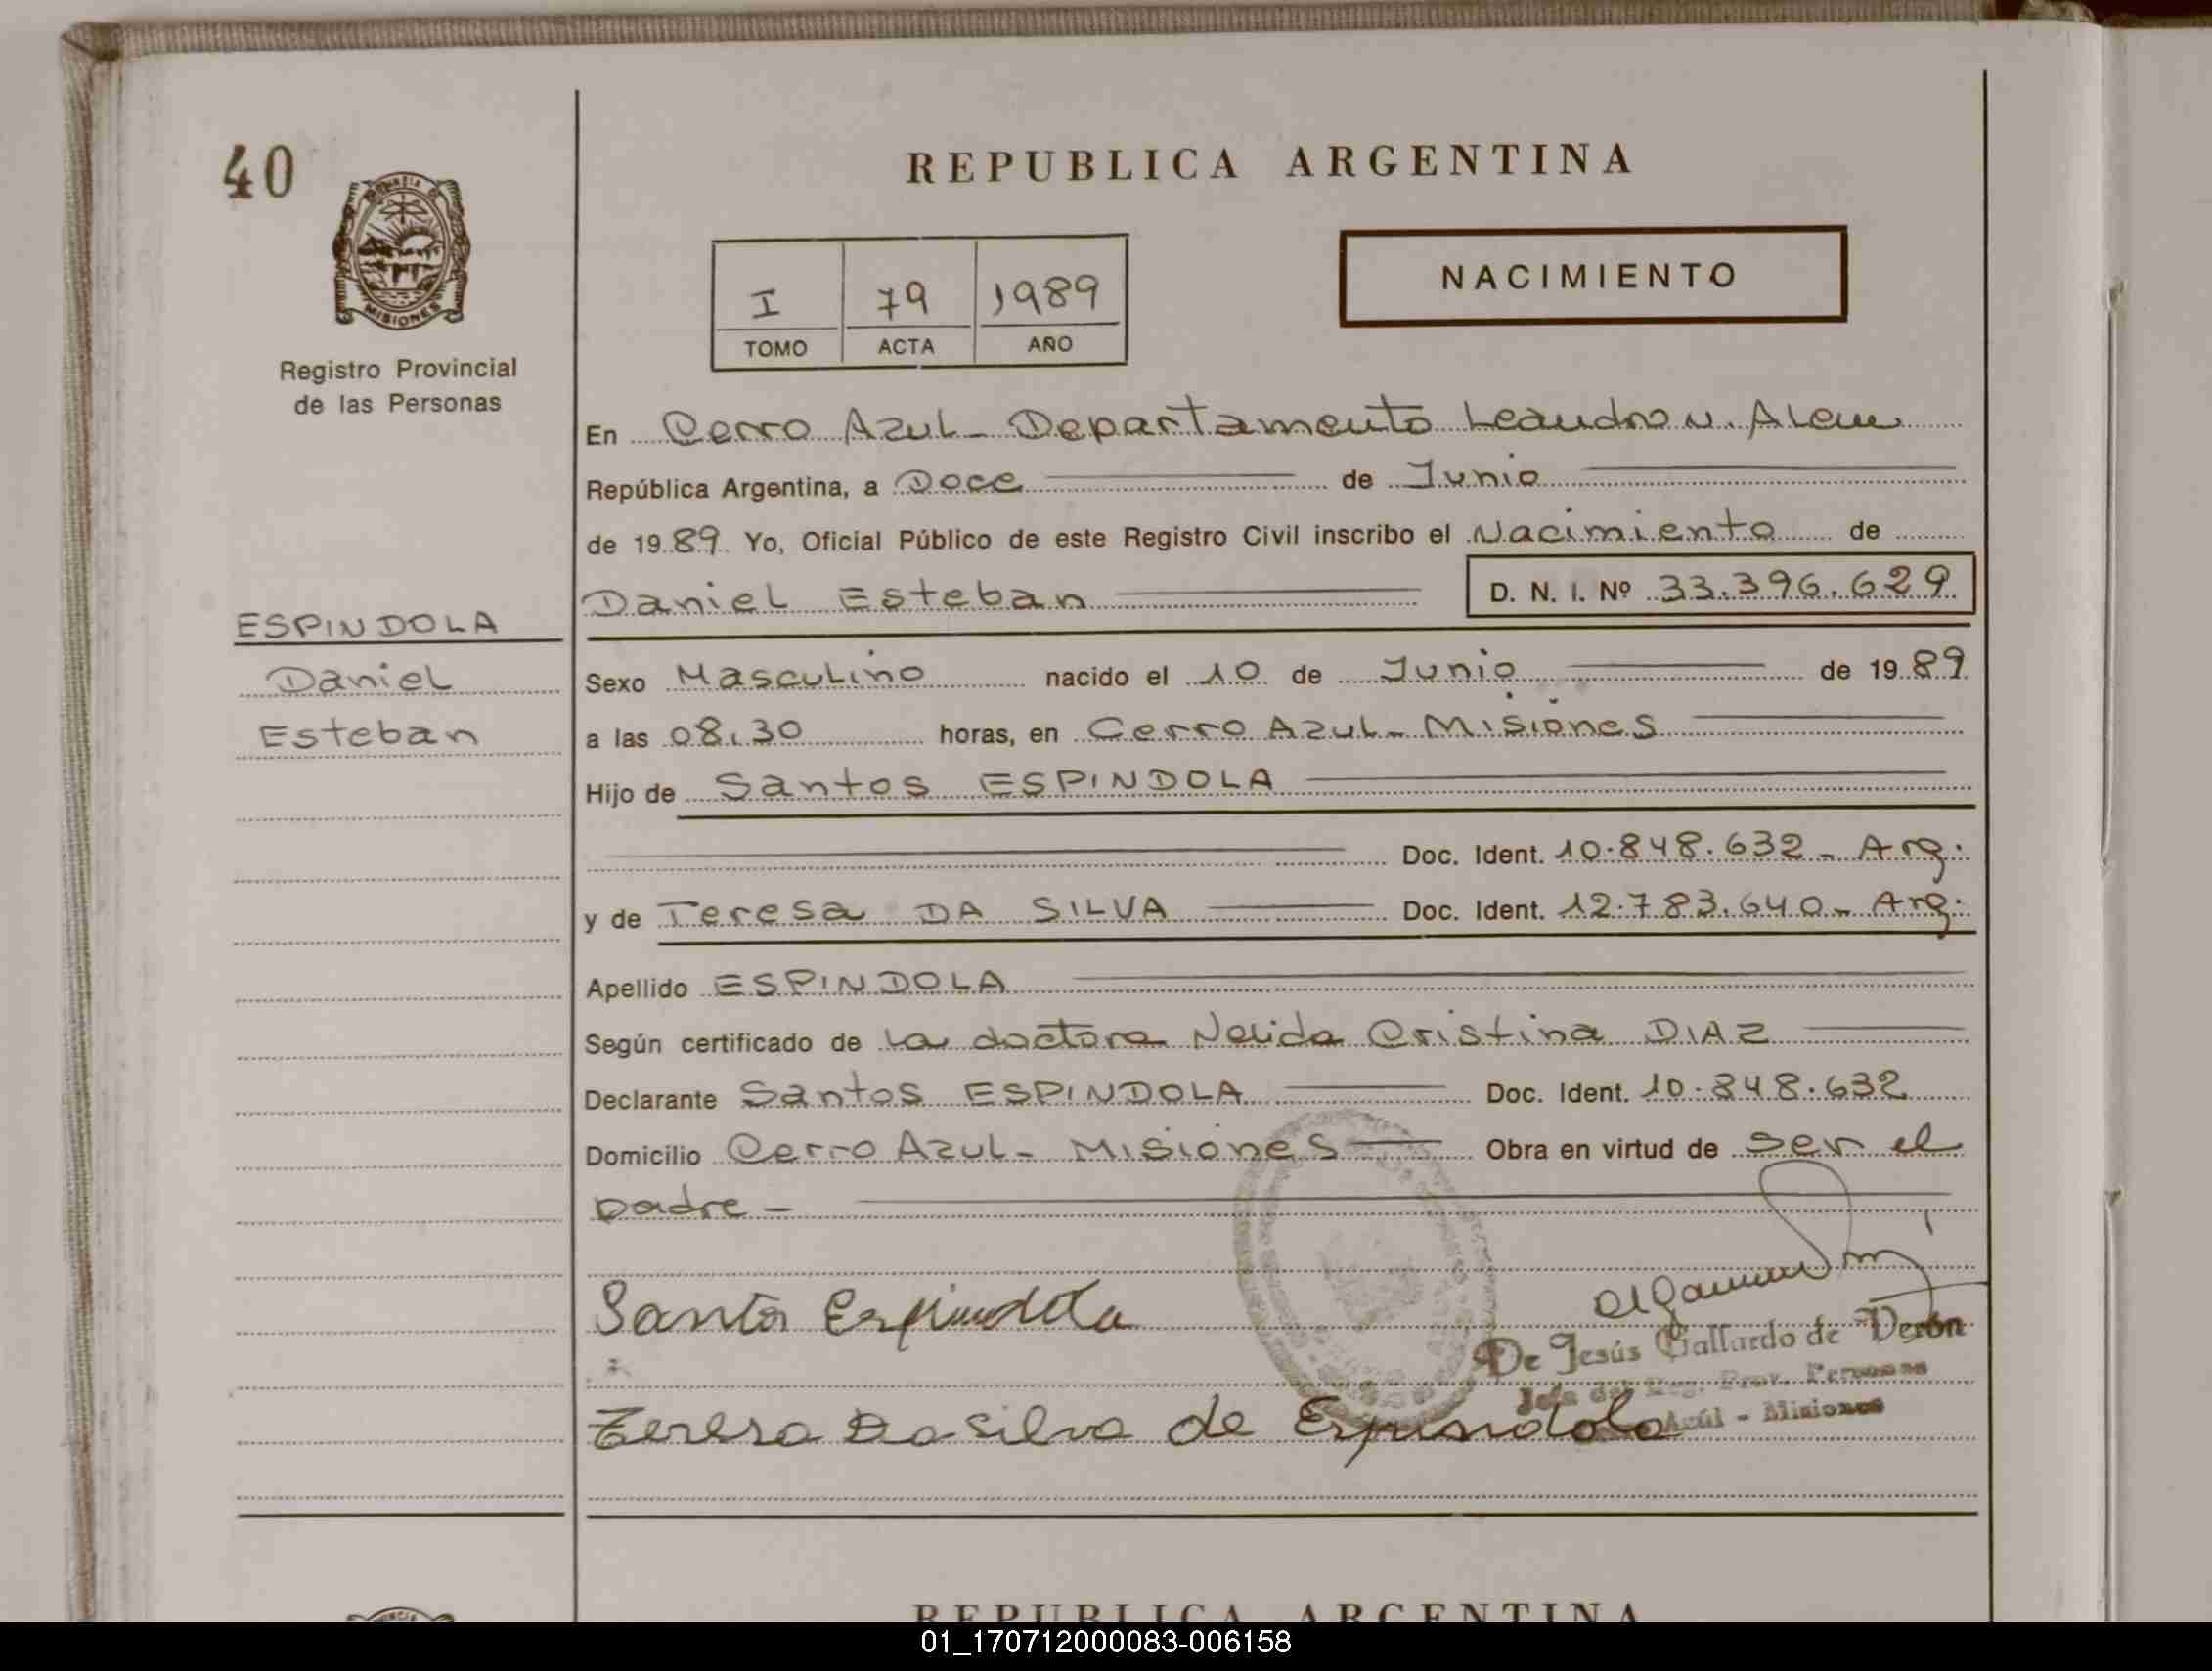 40
REPUBLICA ARGENTINA
MISIONES
Registro Provincial
de las Personas
I 79 1989
TOMO ACTA AÑO
NACIMIENTO
En Cerro Azul - Departamento Leandro N. Alem
República Argentina, a Doce de Junio
de 1989 Yo, Oficial Público de este Registro Civil inscribo el Nacimiento de
Daniel Esteban D. N. I. Nº 33.396.629
ESPINDOLA
Daniel
Esteban
Sexo Masculino nacido el 10 de Junio de 1989
a las 08.30 horas, en Cerro Azul - Misiones
Hijo de Santos ESPINDOLA
Doc. Ident. 10.848.632 - Arg.
y de Teresa DA SILVA Doc. Ident. 12.783.640 - Arg.
Apellido ESPINDOLA
Según certificado de la doctora Nelida Cristina DIAZ
Declarante Santos ESPINDOLA Doc. Ident. 10.848.632
Domicilio Cerro Azul - Misiones Obra en virtud de ser el
padre -
Santos Espindola
De Jesús Gallardo de Verón
Jefa del Reg. Prov. Personas
Azúl - Misiones
Teresa Da Silva de Espindola
REPUBLICA ARGENTINA
01_170712000083-006158